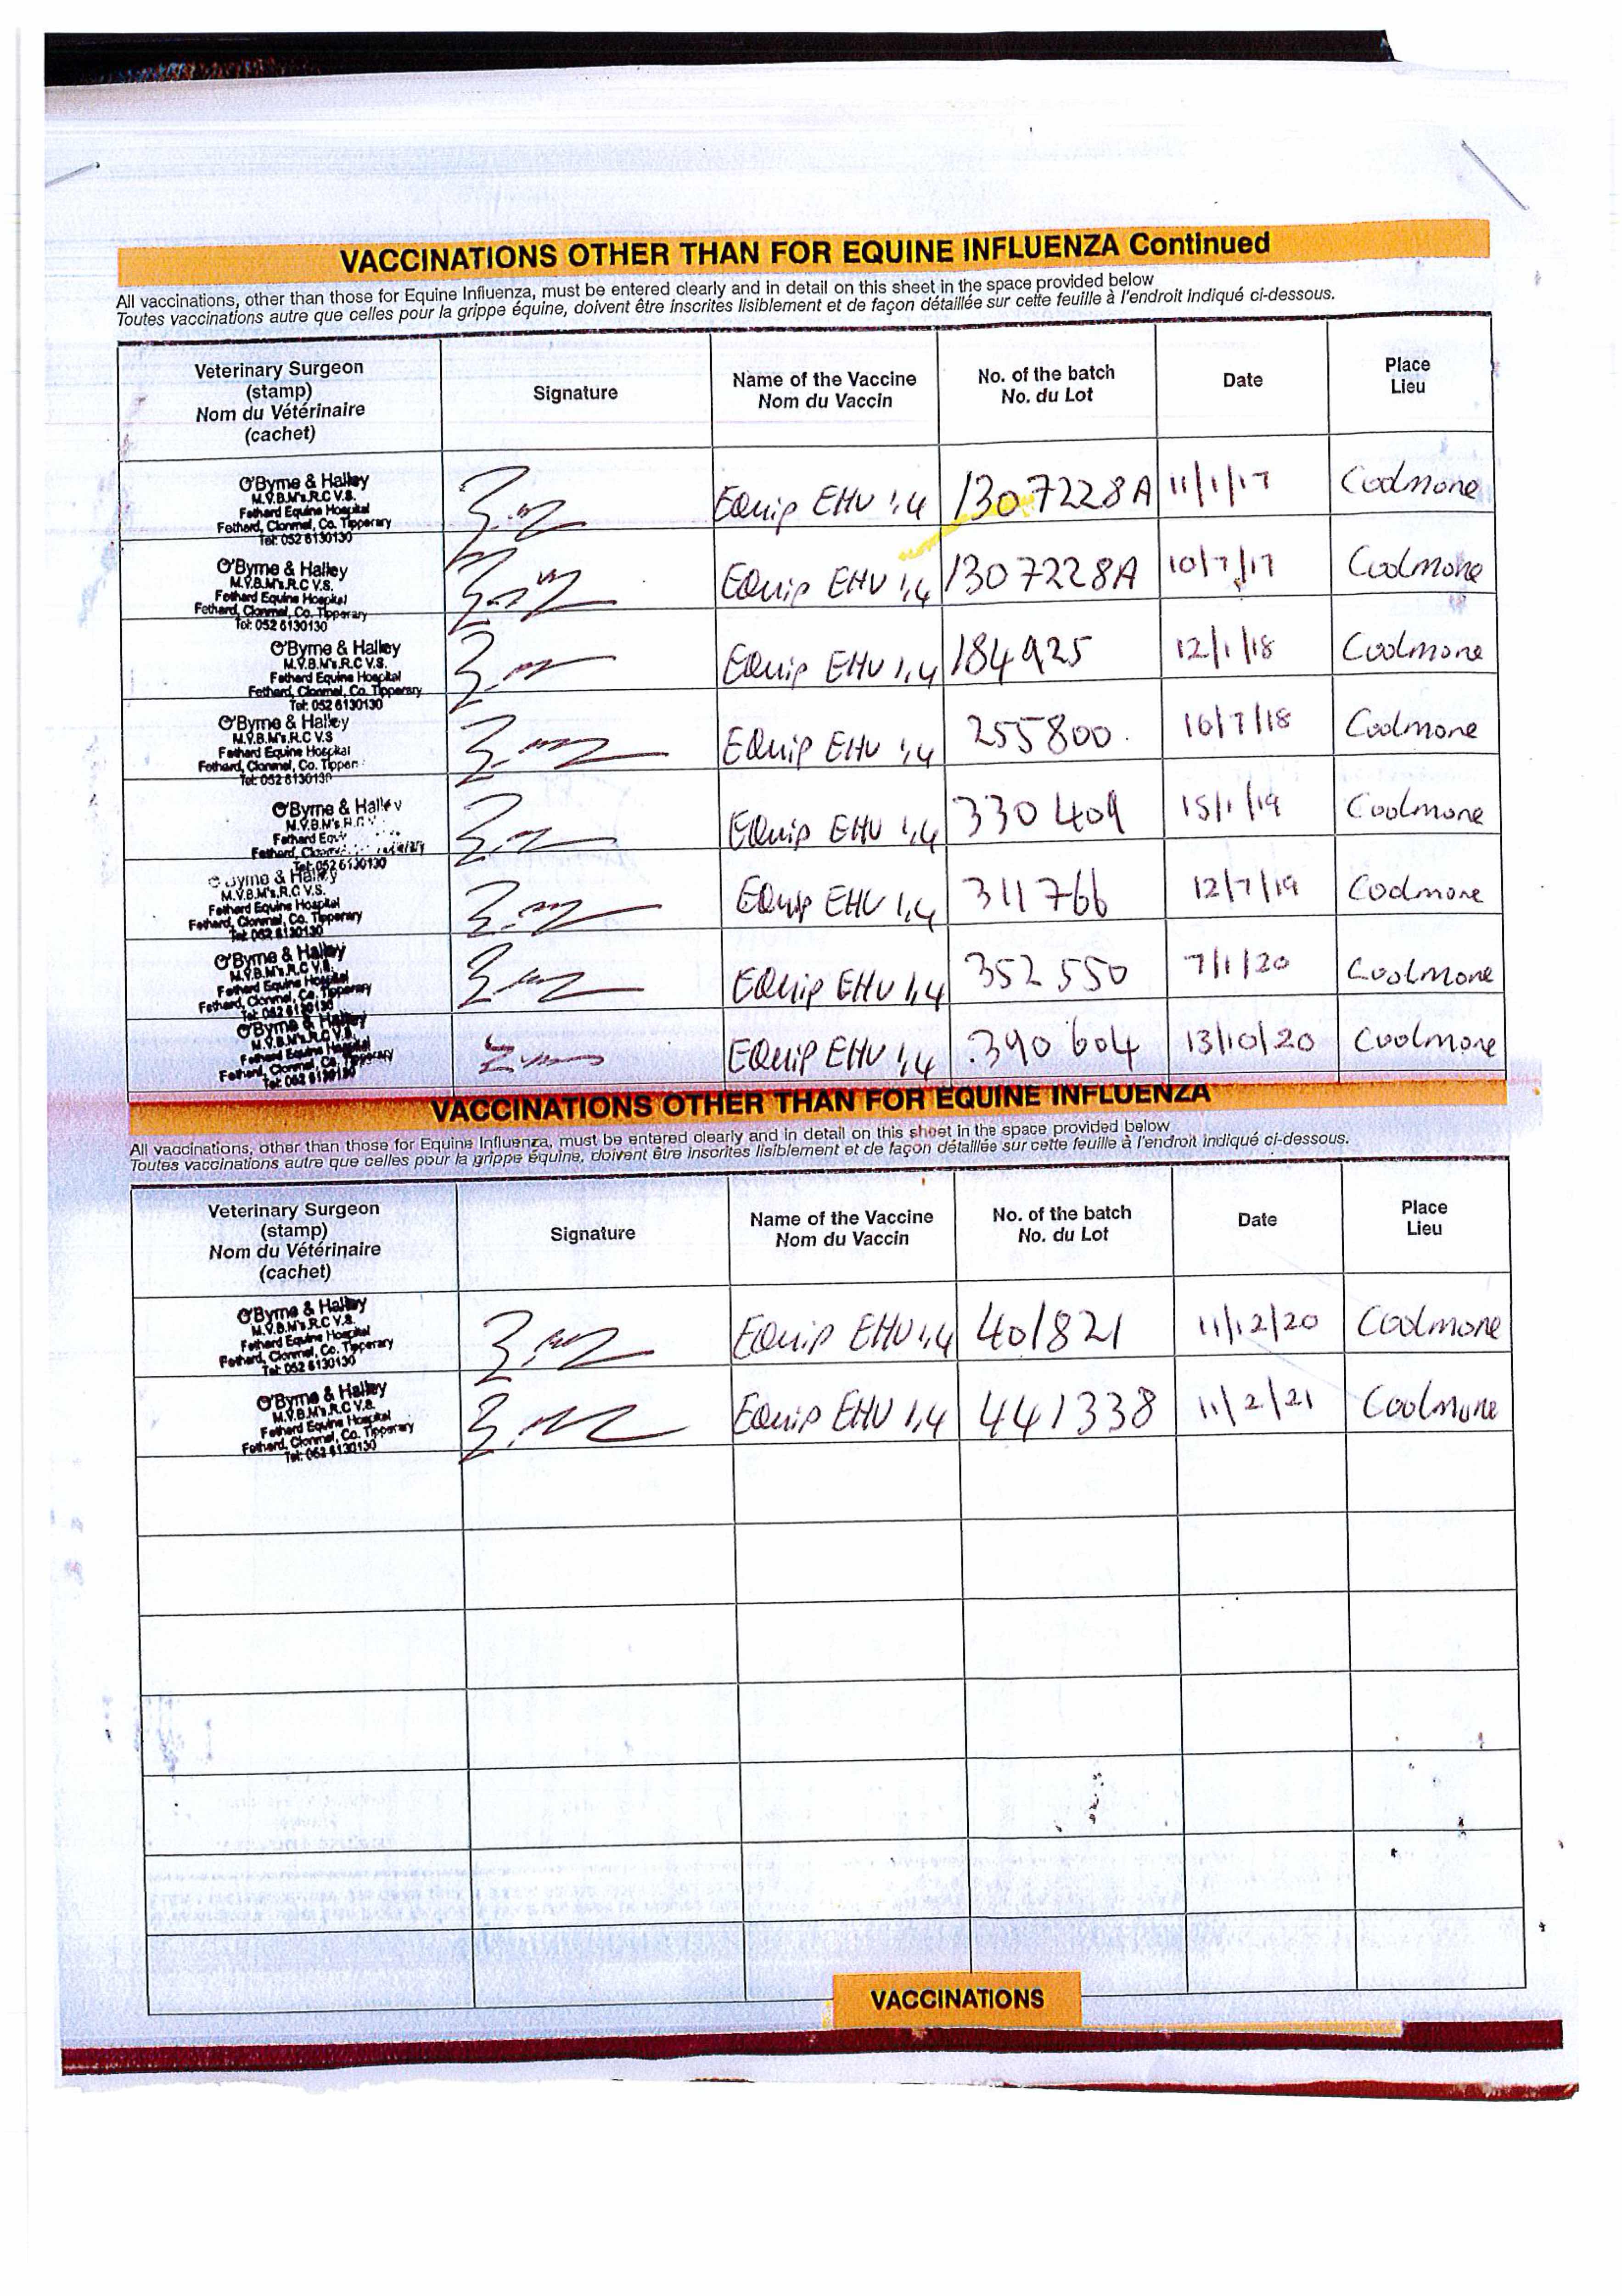 VACCINATIONS OTHER THAN FOR EQUINE INFLUENZA Continued
All vaccinations, other than those for Equine Influenza, must be entered clearly and in detail on this sheet in the space provided below
Toutes vaccinations autre que celles pour la grippe équine, doivent être inscrites lisiblement et de façon détaillée sur cette feuille à l'endroit indiqué ci-dessous.
Veterinary Surgeon
(stamp)
Nom du Vétérinaire
(cachet)
Signature
Name of the Vaccine
Nom du Vaccin
No. of the batch
No. du Lot
Date
Place
Lieu
O'Byrne & Halley
M.V.B.M's.R.C V.S.
Fethard Equine Hospital
Fethard, Clonmel, Co. Tipperary
Tel: 052 6130130
Equip EHV 1,4 1307228A 11/1/17 Coolmore
O'Byrne & Halley
M.V.B.M's.R.C V.S.
Fethard Equine Hospital
Fethard, Clonmel, Co. Tipperary
Tel: 052 6130130
Equip EHV 1,4 1307228A 10/7/17 Coolmore
O'Byrne & Halley
M.V.B.M's.R.C V.S.
Fethard Equine Hospital
Fethard, Clonmel, Co. Tipperary
Tel: 052 6130130
Equip EHV 1,4 184925 12/1/18 Coolmore
O'Byrne & Halley
M.V.B.M's.R.C V.S
Fethard Equine Hospital
Fethard, Clonmel, Co. Tipper
Tel: 052 6130130
Equip EHV 1,4 255800 Coolmore
O'Byrne & Halley
M.V.B.M's
Fethard
Fethard,
Tel: 052 6130130
Equip EHV 1,4 330409 15/1/19 Coolmore
Byrne & Halley
M.V.B.M's.R.C V.S.
Fethard Equine Hospital
Fethard, Clonmel, Co. Tipperary
Tel: 052 6130130
Equip EHV 1,4 311766 12/7/19 Coolmore
O'Byrne & Halley
M.V.B.M's.R.C V.S.
Fethard Equine Hospital
Fethard, Clonmel, Co. Tipperary
Tel: 052 6130130
Equip EHV 1,4 352550 7/1/20 Coolmore
O'Byrne & Halley
M.V.B.M's.R.C V.S.
Fethard Equine Hospital
Fethard, Clonmel, Co. Tipperary
Tel: 052 6130130
Equip EHV 1,4 390604 13/10/20 Coolmore
VACCINATIONS OTHER THAN FOR EQUINE INFLUENZA
All vaccinations, other than those for Equine Influenza, must be entered clearly and in detail on this sheet in the space provided below
Toutes vaccinations autre que celles pour la grippe équine, doivent être inscrites lisiblement et de façon détaillée sur cette feuille à l'endroit indiqué ci-dessous.
Veterinary Surgeon
(stamp)
Nom du Vétérinaire
(cachet)
Signature
Name of the Vaccine
Nom du Vaccin
No. of the batch
No. du Lot
Date
Place
Lieu
O'Byrne & Halley
M.V.B.M's.R.C V.S.
Fethard Equine Hospital
Fethard, Clonmel, Co. Tipperary
Tel: 052 6130130
Equip EHV 1,4 401821 11/12/20 Coolmore
O'Byrne & Halley
M.V.B.M's.R.C V.S.
Fethard Equine Hospital
Fethard, Clonmel, Co. Tipperary
Tel: 052 6130130
Equip EHV 1,4 441338 11/2/21 Coolmore
VACCINATIONS